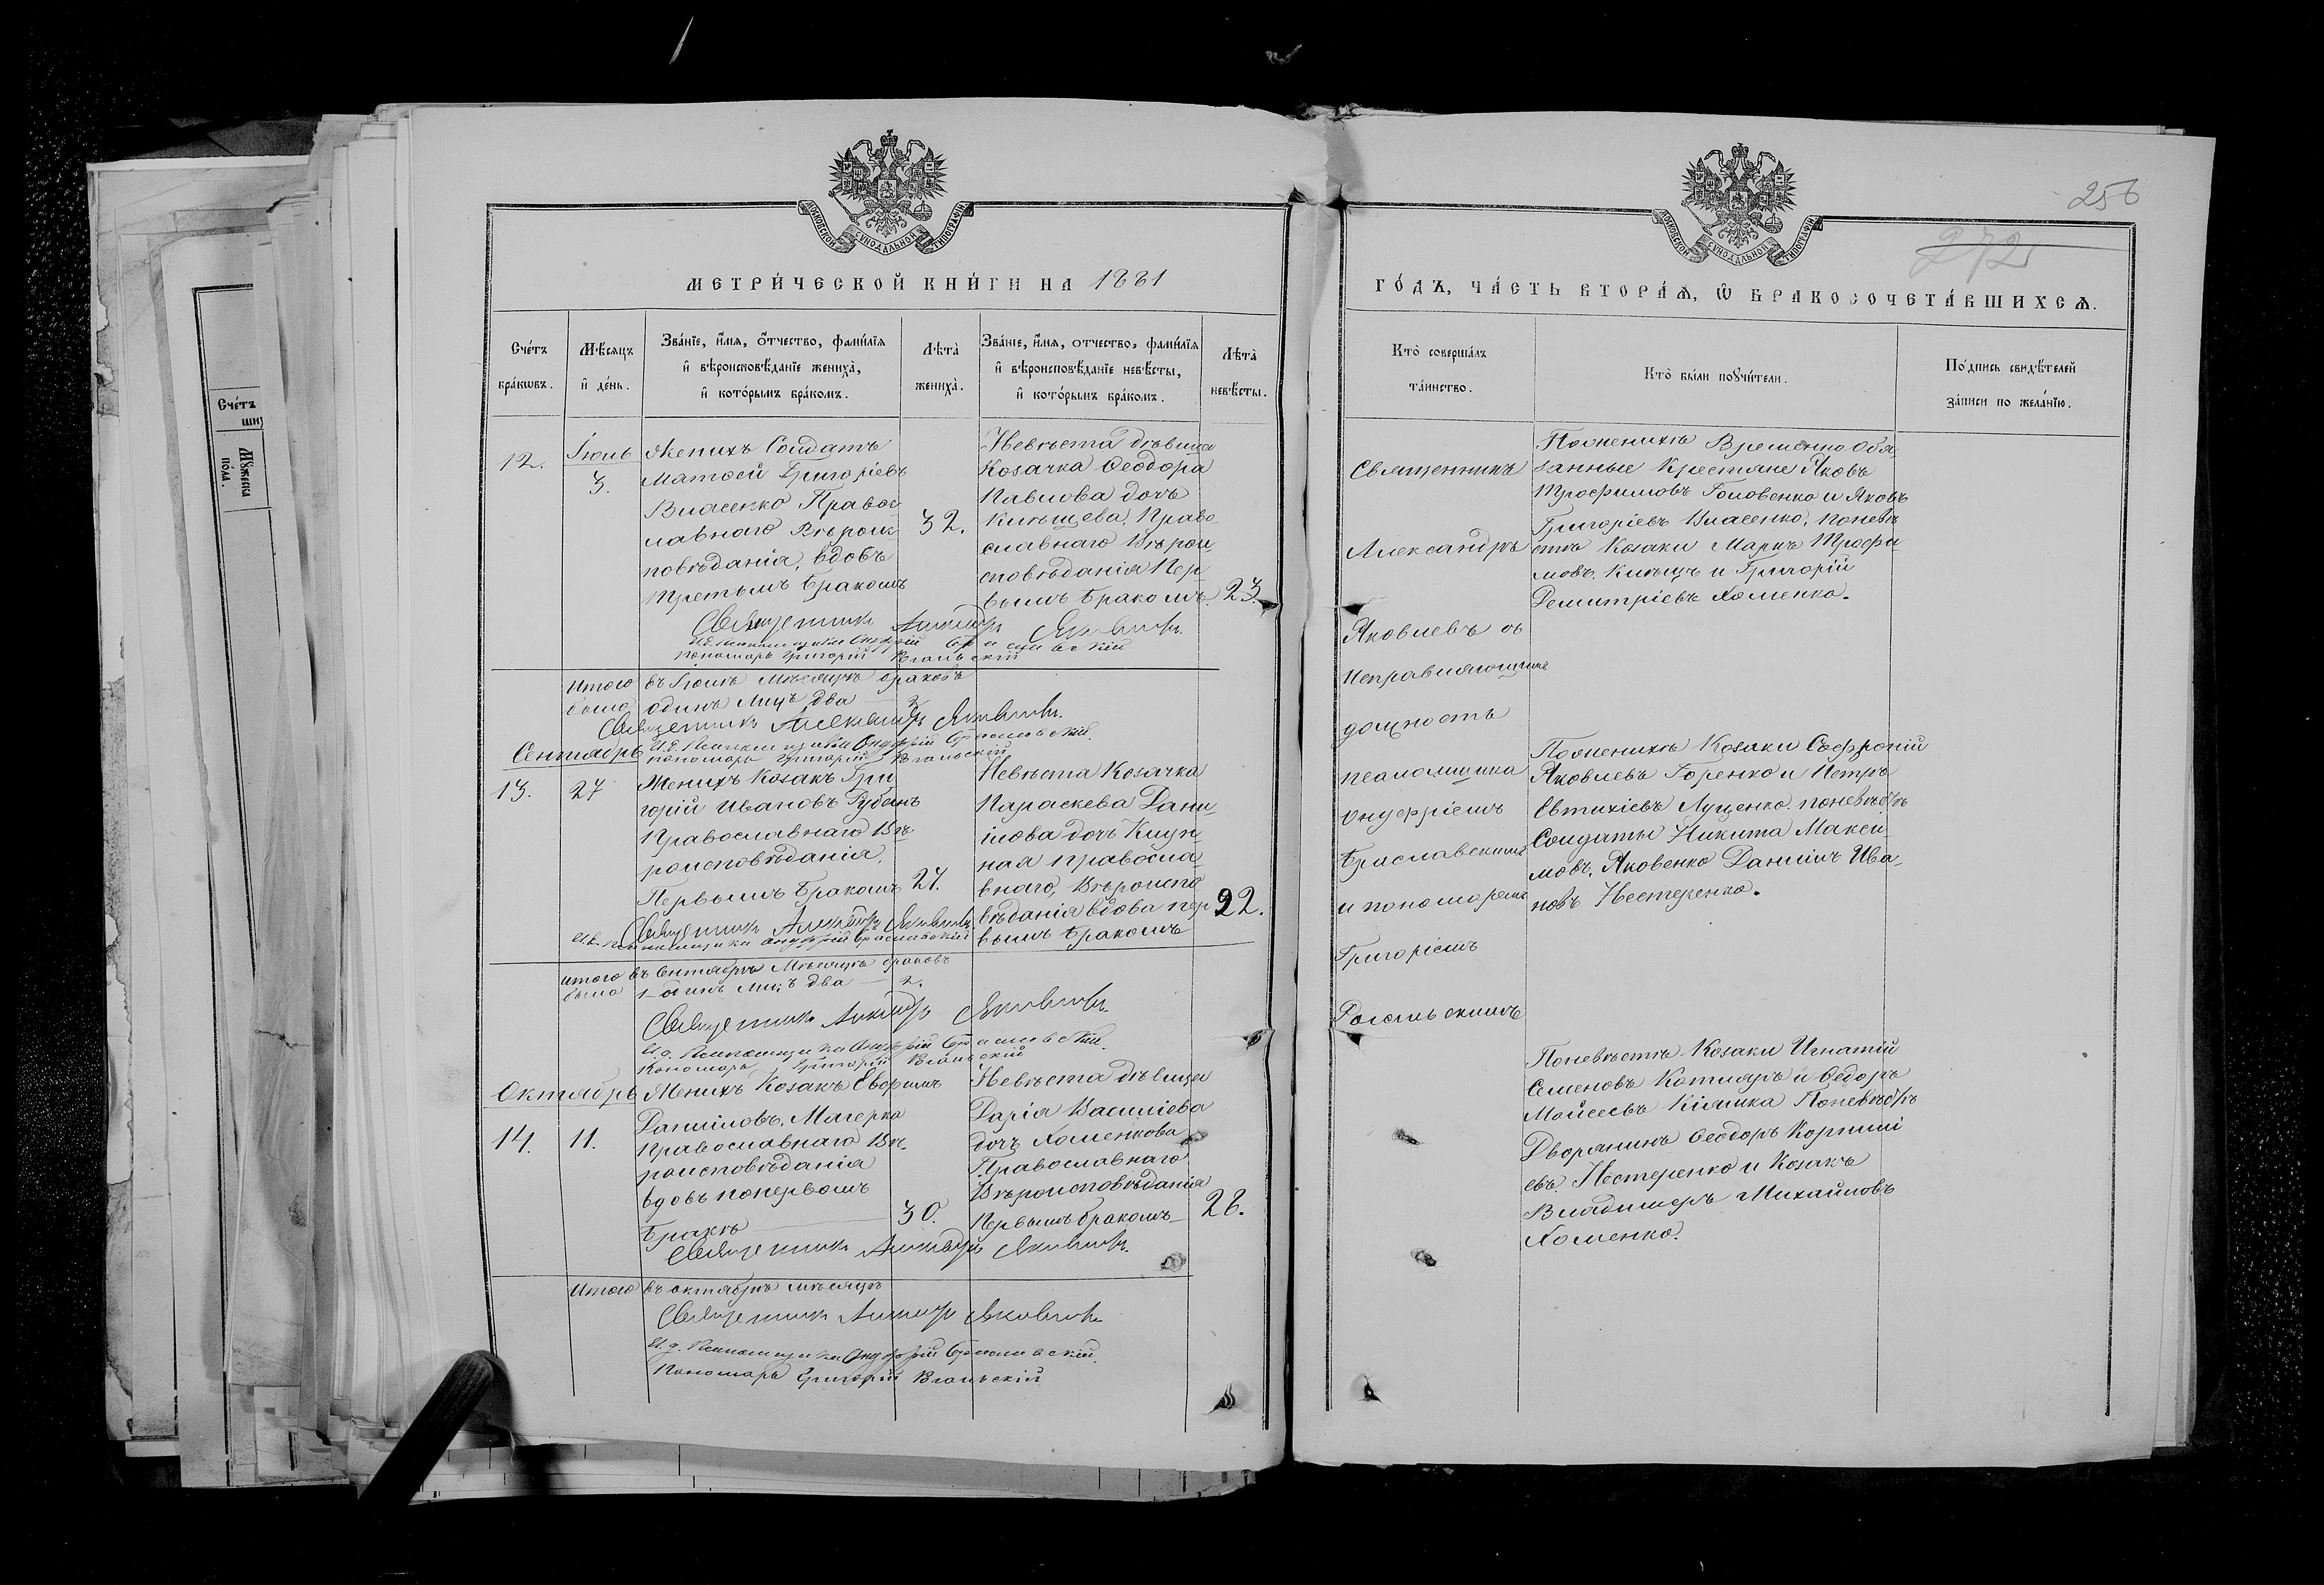 256
272
МОСКОВСКОЙ СѴНОДАЛЬНОЙ ТИПОГРАФІИ
МЕТРИ́ЧЕСКОЙ КНИ́ГИ НА 1881
Сче́тъ бра́кѡвъ.
Мѣ́сяцъ и҆ де́нь.
Зва́нїе, и҆́мѧ, ѻ҆́тчество, фами́лїѧ
и҆ вѣроисповѣ́данїе жениха̀,
и҆ кото́рымъ бра́комъ.
Лѣта̀ жениха̀.
Зва́нїе, и҆́мѧ, отчество, фами́лїѧ
и҆ вѣроисповѣ́данїе невѣ́сты,
и҆ кото́рымъ бра́комъ.
Лѣта̀ невѣ́сты.
12.
Іюль
3.
Женихъ Солдатъ
Матѳей Григоріевъ
Власенко Правос
лавнаго Вѣроис
повѣданія, вдовъ
Третьимъ Бракомъ
32.
Невѣста дѣвица
Козачка Ѳеодора
Павлова дочь
Право
славнаго Вѣрои
сповѣданія Пер
вымъ Бракомъ.
23.
Священникъ Александръ Яковлевъ
Пономарь Григорій
Итого въ Іюлѣ Мѣсяцѣ браковъ
было одинъ Лицъ два — 2
Священникъ Александръ Яковлевъ
И.д. Псаломщика Онуфрій Бриславскій
Пономарь Григорій
Сентябрь
13.
27
Женихъ Козакъ Гри
горій Ивановъ Рубанъ
Православнаго Вѣ
роисповѣданія.
Первымъ Бракомъ
27.
Невѣста Козачка
Параскева Дани
лова дочь Куц
ная Правосла
внаго, Вѣроиспо
вѣданія вдова пер
вымъ Бракомъ
22.
Священникъ Александръ Яковлевъ
И.д. Псаломщика Онуфрій Бриславскій
Итого въ Сентябрѣ Мѣсяцѣ браковъ
было 1 - одинъ Лицъ два — 2.
Священникъ Александръ Яковлевъ
И.д. Псаломщика Онуфрій Бриславскій.
Пономарь Григорій
Октябрь
14.
11.
Женихъ Козакъ Евфимъ
Даниловъ. Магерка
Православнаго Вѣ
роисповѣданія
вдовъ поперьвомъ
Бракѣ
30.
Невѣста дѣвица
Дарія Василіева
дочь Хоменкова
Православнаго
Вѣроисповѣданія
Первымъ бракомъ
26.
Священникъ Александръ Яковлевъ
Итого въ октябрѣ мѣсяцѣ
Священникъ Александръ Яковлевъ
И.д. Псаломщика Онуфрій Бриславскій.
Пономарь Григорій
МОСКОВСКОЙ СѴНОДАЛЬНОЙ ТИПОГРАФІИ
ГО́ДЪ, ЧА́СТЬ ВТОРА́Ѧ, Ѽ БРАКОСОЧЕТА́ВШИХСѦ.
Кто̀ соверша́лъ та́инство.
Кто̀ бы́ли поꙋчи́тели.
По́дпись свидѣ́телей за́писи по жела́нїю.
Священникъ
Александръ
Яковлевъ съ
исправляющимъ
должность
псаломщика
Онуфріемъ
Бриславскимъ
и пономаремъ
Григоріемъ
Поженихѣ Временно Обя
занные Крестяне Яковъ
Трофимовъ Головенко и Яковъ
Григоріевъ Власенко, поневѣ
стѣ Козаки Маркъ Трофи
мовъ. и Григорій
Димитріевъ Хоменко.
Поженихѣ Козаки Софроній
Яковлевъ Горенко и Петръ
Евтихіевъ Луценко. поневѣстѣ
Солдаты Никита Макси
мовъ, Яковенко Даніилъ Ива
новъ Нестеренко.
Поневѣстѣ Козаки Игнатій
Семеновъ Котляръ и Ѳедоръ
Мойсеевъ Кіяшка Поневѣстѣ
Дворянинъ Ѳеодоръ Корнилі
евъ. Нестеренко и Козакъ
Владимеръ Михайловъ
Хоменко.
Сче́тъ
Мꙋ́жеска по́ла.